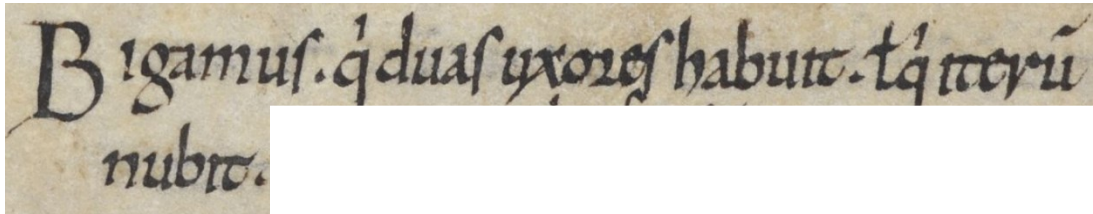 Bigamus. qi duas uxores habuit. ł qi iterū
nubit.